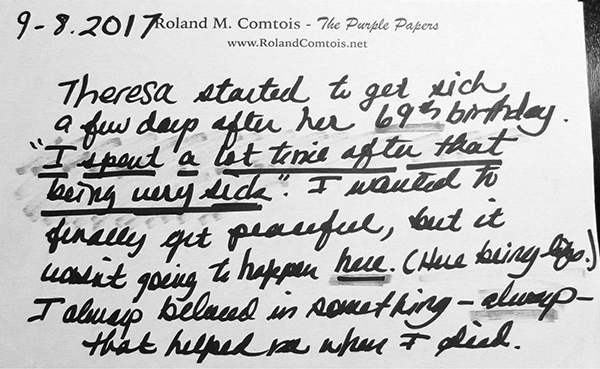 9-8.2017 Roland M. Comtois - The Purple Papers
www.RolandComtois.net
Theresa started to get sick
a few days after her 69th birthday.
"I spent a lot time after that
being very sick". I wanted to
finally get peaceful, but it
wasn't going to happen here. (Here being life.)
I always believed in something - always -
that helped me when I died.